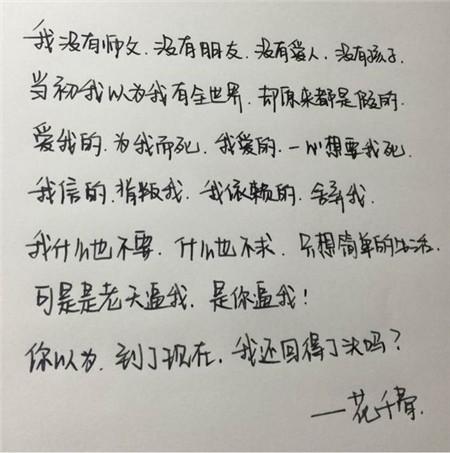 我没有师父.没有朋友.没有爱人.没有孩子.
当初我以为我有全世界.却原来都是假的.
爱我的.为我而死.我爱的.一心想要我死.
我信的.背叛我.我依赖的.舍弃我.
我什么也不要.什么也不求.只想简单的生活.
可是是老天逼我.是你逼我!
你以为.到了现在.我还回得了头吗?
—花千骨.